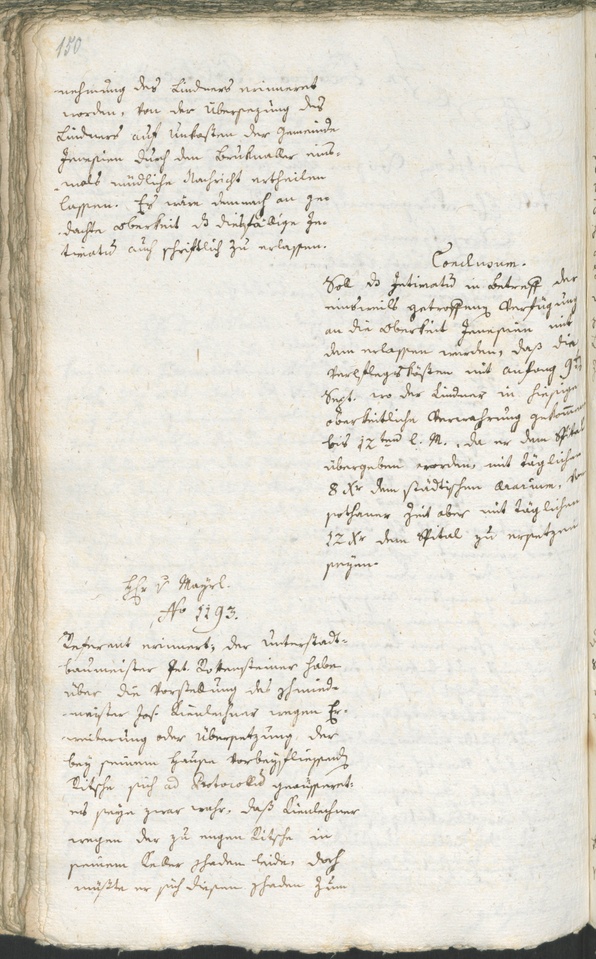 150
nehmung des Lindners erinneret
worden, von der Übersezung des
Lindners auf Unkosten der Gemeinde
Jenesien durch den Bruknaller eins-
mals mündliche Nachricht ertheilen
lassen. Es wäre demnach an ge-
dachte Oberkeit das diesfällige In-
timatum auch schriftlich zu erlassen.
Conclusum.
Soll das Intimatum in Betreff der
einsweils getroffenen Verfügung
an die Oberkeit Jenesien mit
dem erlassen werden, daß die
Verpflegskösten mit Anfang 9ten
Sept. wo der Lindner in hiesige
oberkeitliche Verwahrung gekommen
bis 12ten l. M., da er dem Spital
übergeben worden, mit täglichen
8 Xr dem städtischen Aerarium, von
sothaner Zeit aber mit täglichen
12 Xr dem Spital zu ersetzen
seyen.
Hr v. Mayrl.
No 1193.
Referent erinnert, der Unterstadt-
baumeister Pet. Rottensteiner habe
über die Vorstellung des Schmied-
meister Jos. Kienlechner wegen Er-
weiterung oder Übersetzung der
bey seinem Hause vorbeyfliessenden
Ritsche sich ad Protocollum geäusseret:
es seye zwar wahr, daß Kienlechner
wegen der zu engen Ritsche in
seinem Keller Schaden leide, doch
müßte er sich diesen Schaden zum